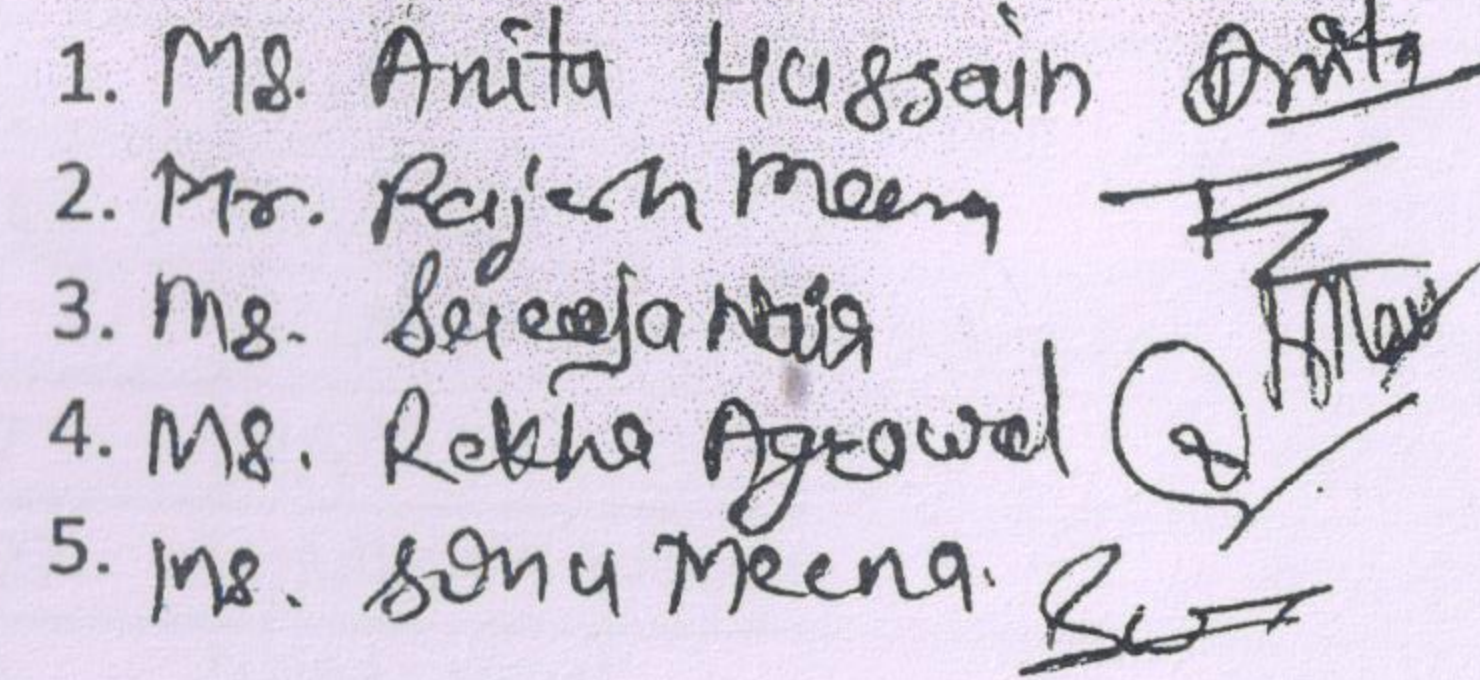 1. Ms. Anita Hussain Anita
2. Mr. Rajesh Meena
3. Ms. Sreeja Nair
4. Ms. Rekha Agrawal
5. Ms. Sonu Meena.